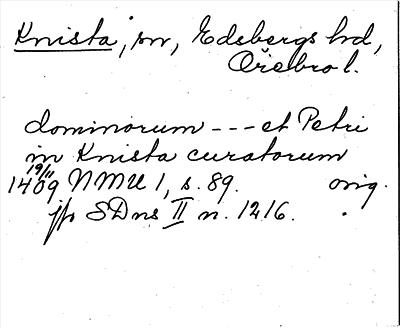 Knista, sn, Edsbergs hd,
Örebro l.
dominorum --- et Petri
in Knista curatorum
19/11
1409 NMU 1, s. 89. orig.
jfr SDns II n. 1216.